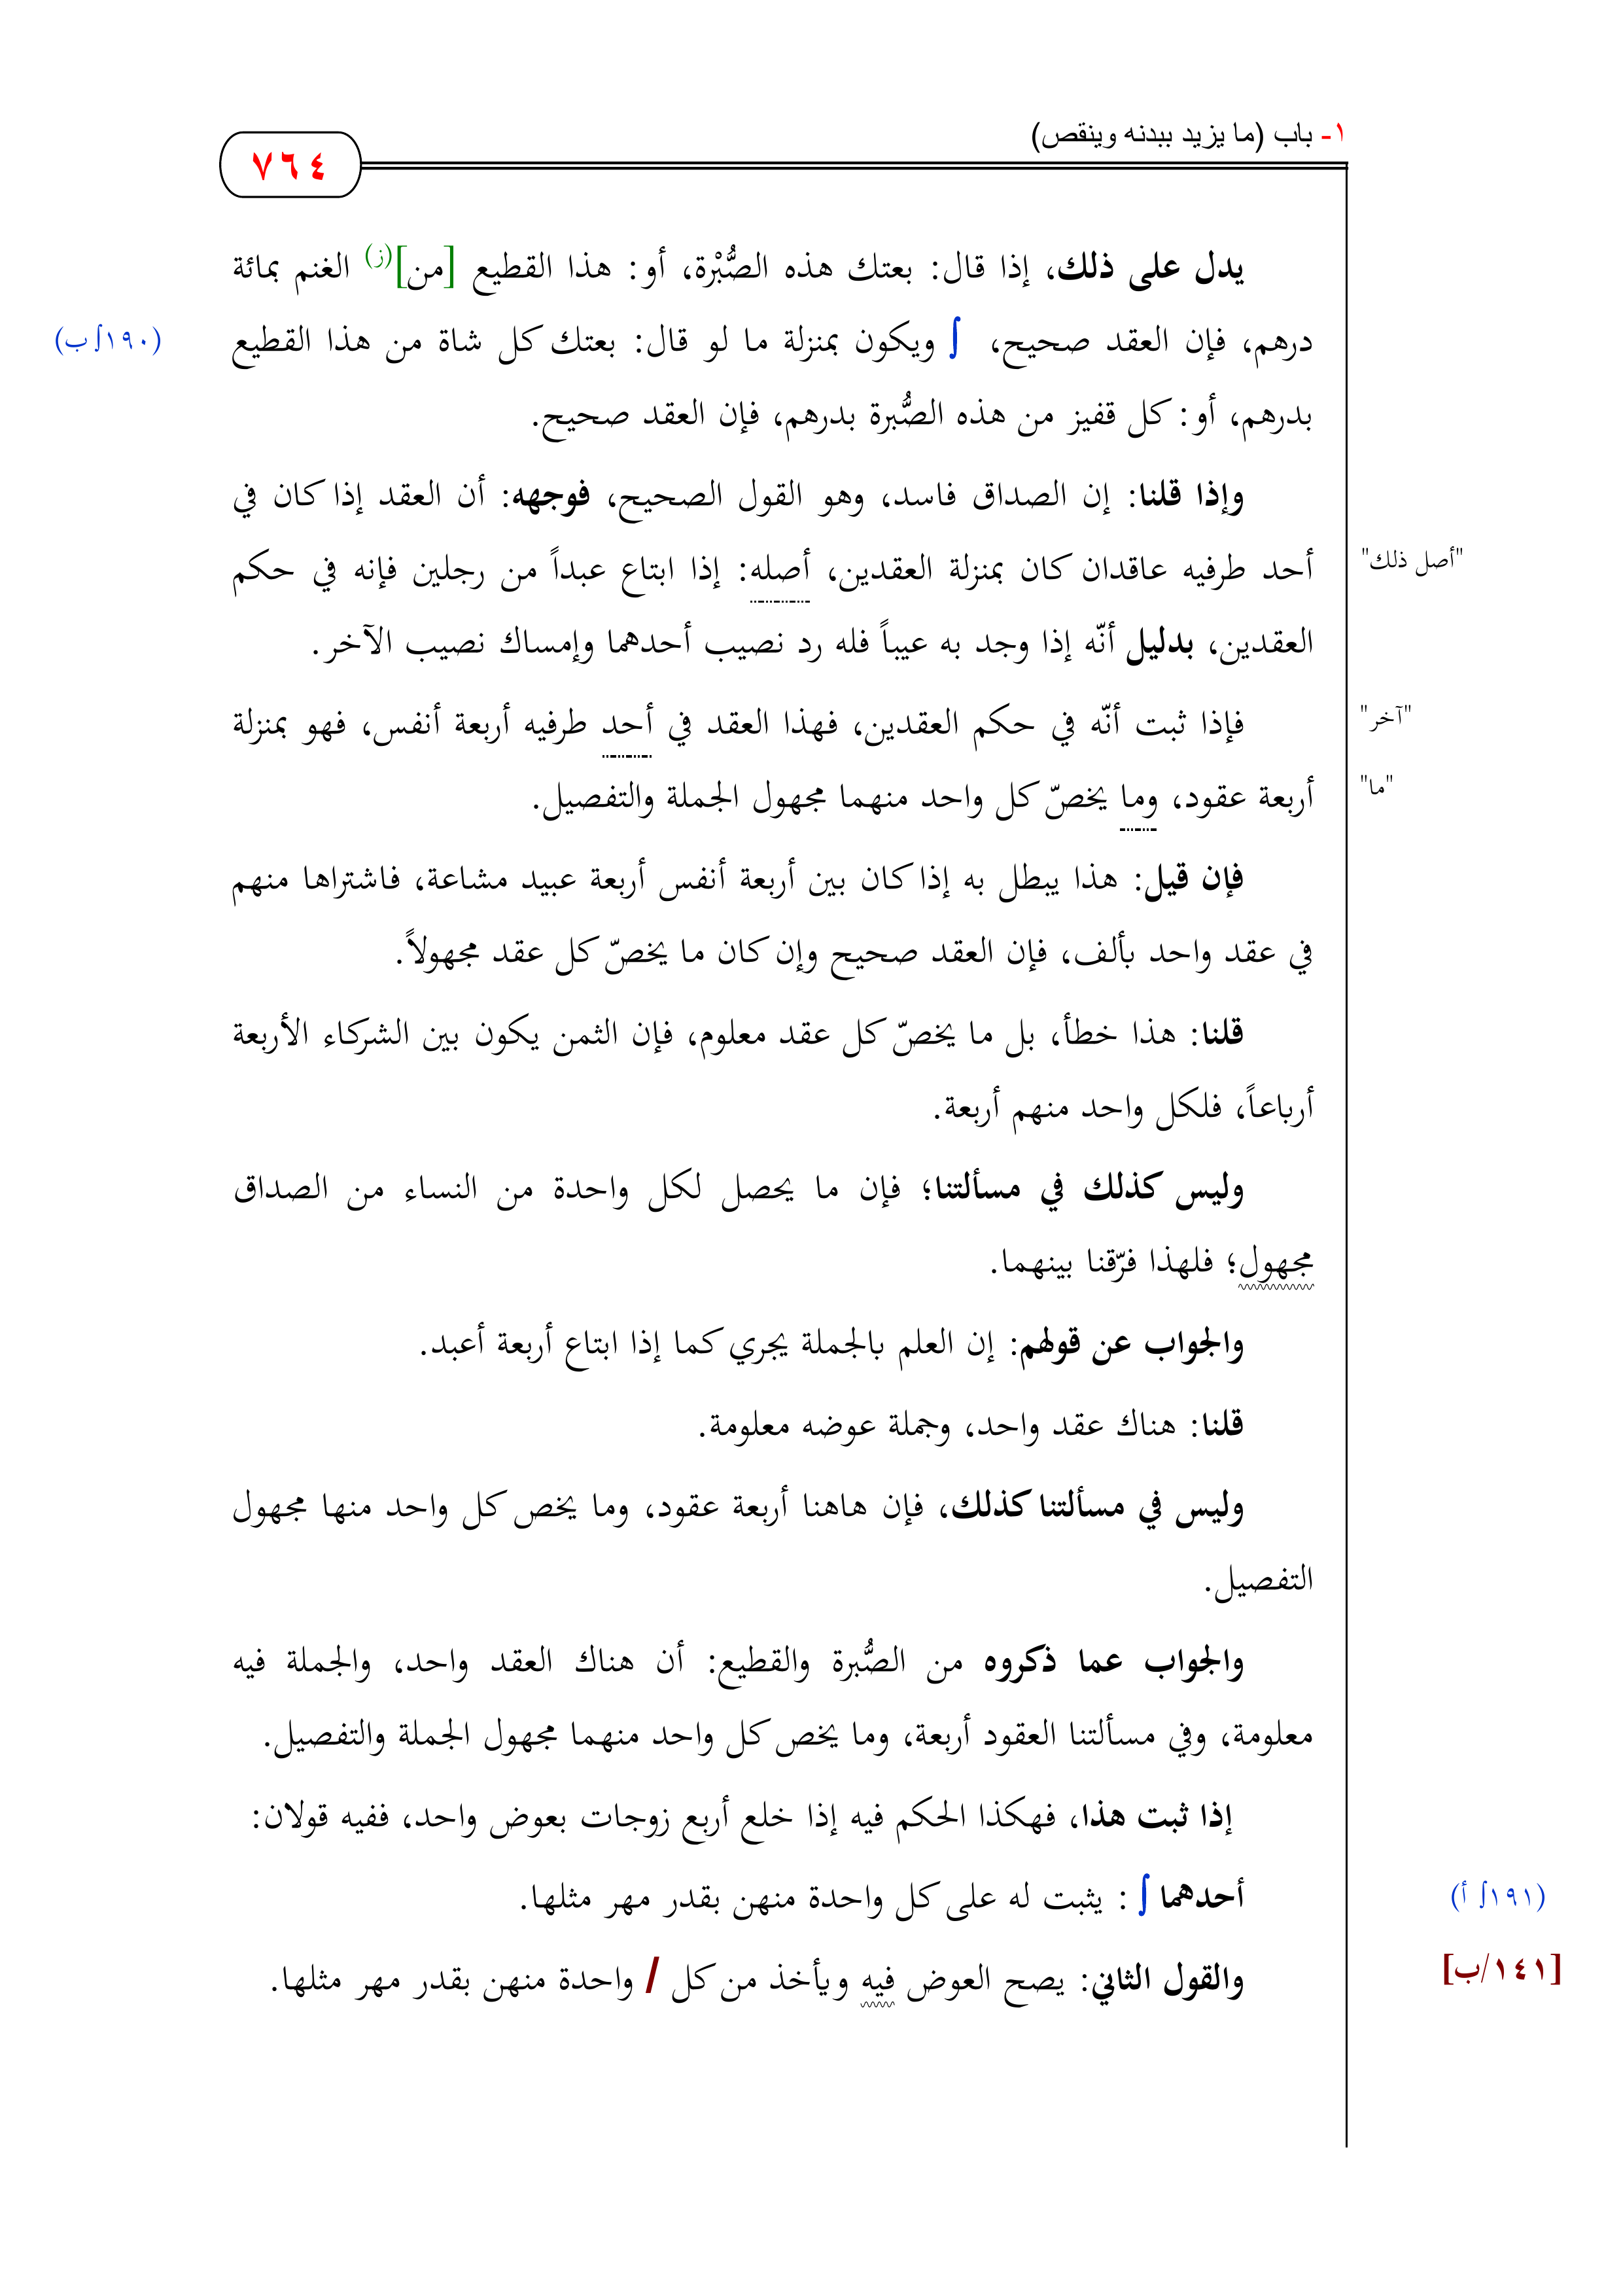 ١- باب (ما يزيد ببدنه وينقص)
٧٦٤
يدل على ذلك، إذا قال: بعتك هذه الصُّبْرة، أو: هذا القطيع [من](ز) الغنم بمائة
درهم، فإن العقد صحيح، ∫ ويكون بمنزلة ما لو قال: بعتك كل شاة من هذا القطيع
(١٩٠∫ب)
بدرهم، أو: كل قفيز من هذه الصُّبرة بدرهم، فإن العقد صحيح.
وإذا قلنا: إن الصداق فاسد، وهو القول الصحيح، فوجهه: أن العقد إذا كان في
"أصل ذلك"
أحد طرفيه عاقدان كان بمنزلة العقدين، أصله: إذا ابتاع عبداً من رجلين فإنه في حكم
العقدين، بدليل أنّه إذا وجد به عيباً فله رد نصيب أحدهما وإمساك نصيب الآخر.
"آخر"
فإذا ثبت أنّه في حكم العقدين، فهذا العقد في أحد طرفيه أربعة أنفس، فهو بمنزلة
"ما"
أربعة عقود، وما يخصّ كل واحد منهما مجهول الجملة والتفصيل.
فإن قيل: هذا يبطل به إذا كان بين أربعة أنفس أربعة عبيد مشاعة، فاشتراها منهم
في عقد واحد بألف، فإن العقد صحيح وإن كان ما يخصّ كل عقد مجهولاً.
قلنا: هذا خطأ، بل ما يخصّ كل عقد معلوم، فإن الثمن يكون بين الشركاء الأربعة
أرباعاً، فلكل واحد منهم أربعة.
وليس كذلك في مسألتنا؛ فإن ما يحصل لكل واحدة من النساء من الصداق
مجهول؛ فلهذا فرّقنا بينهما.
والجواب عن قولهم: إن العلم بالجملة يجري كما إذا ابتاع أربعة أعبد.
قلنا: هناك عقد واحد، وجملة عوضه معلومة.
وليس في مسألتنا كذلك، فإن هاهنا أربعة عقود، وما يخص كل واحد منها مجهول
التفصيل.
والجواب عما ذكروه من الصُّبرة والقطيع: أن هناك العقد واحد، والجملة فيه
معلومة، وفي مسألتنا العقود أربعة، وما يخص كل واحد منهما مجهول الجملة والتفصيل.
إذا ثبت هذا، فهكذا الحكم فيه إذا خلع أربع زوجات بعوض واحد، ففيه قولان:
أحدهما ∫ : يثبت له على كل واحدة منهن بقدر مهر مثلها.
(١٩١∫ أ)
والقول الثاني: يصح العوض فيه ويأخذ من كل / واحدة منهن بقدر مهر مثلها.
[١٤١/ب]